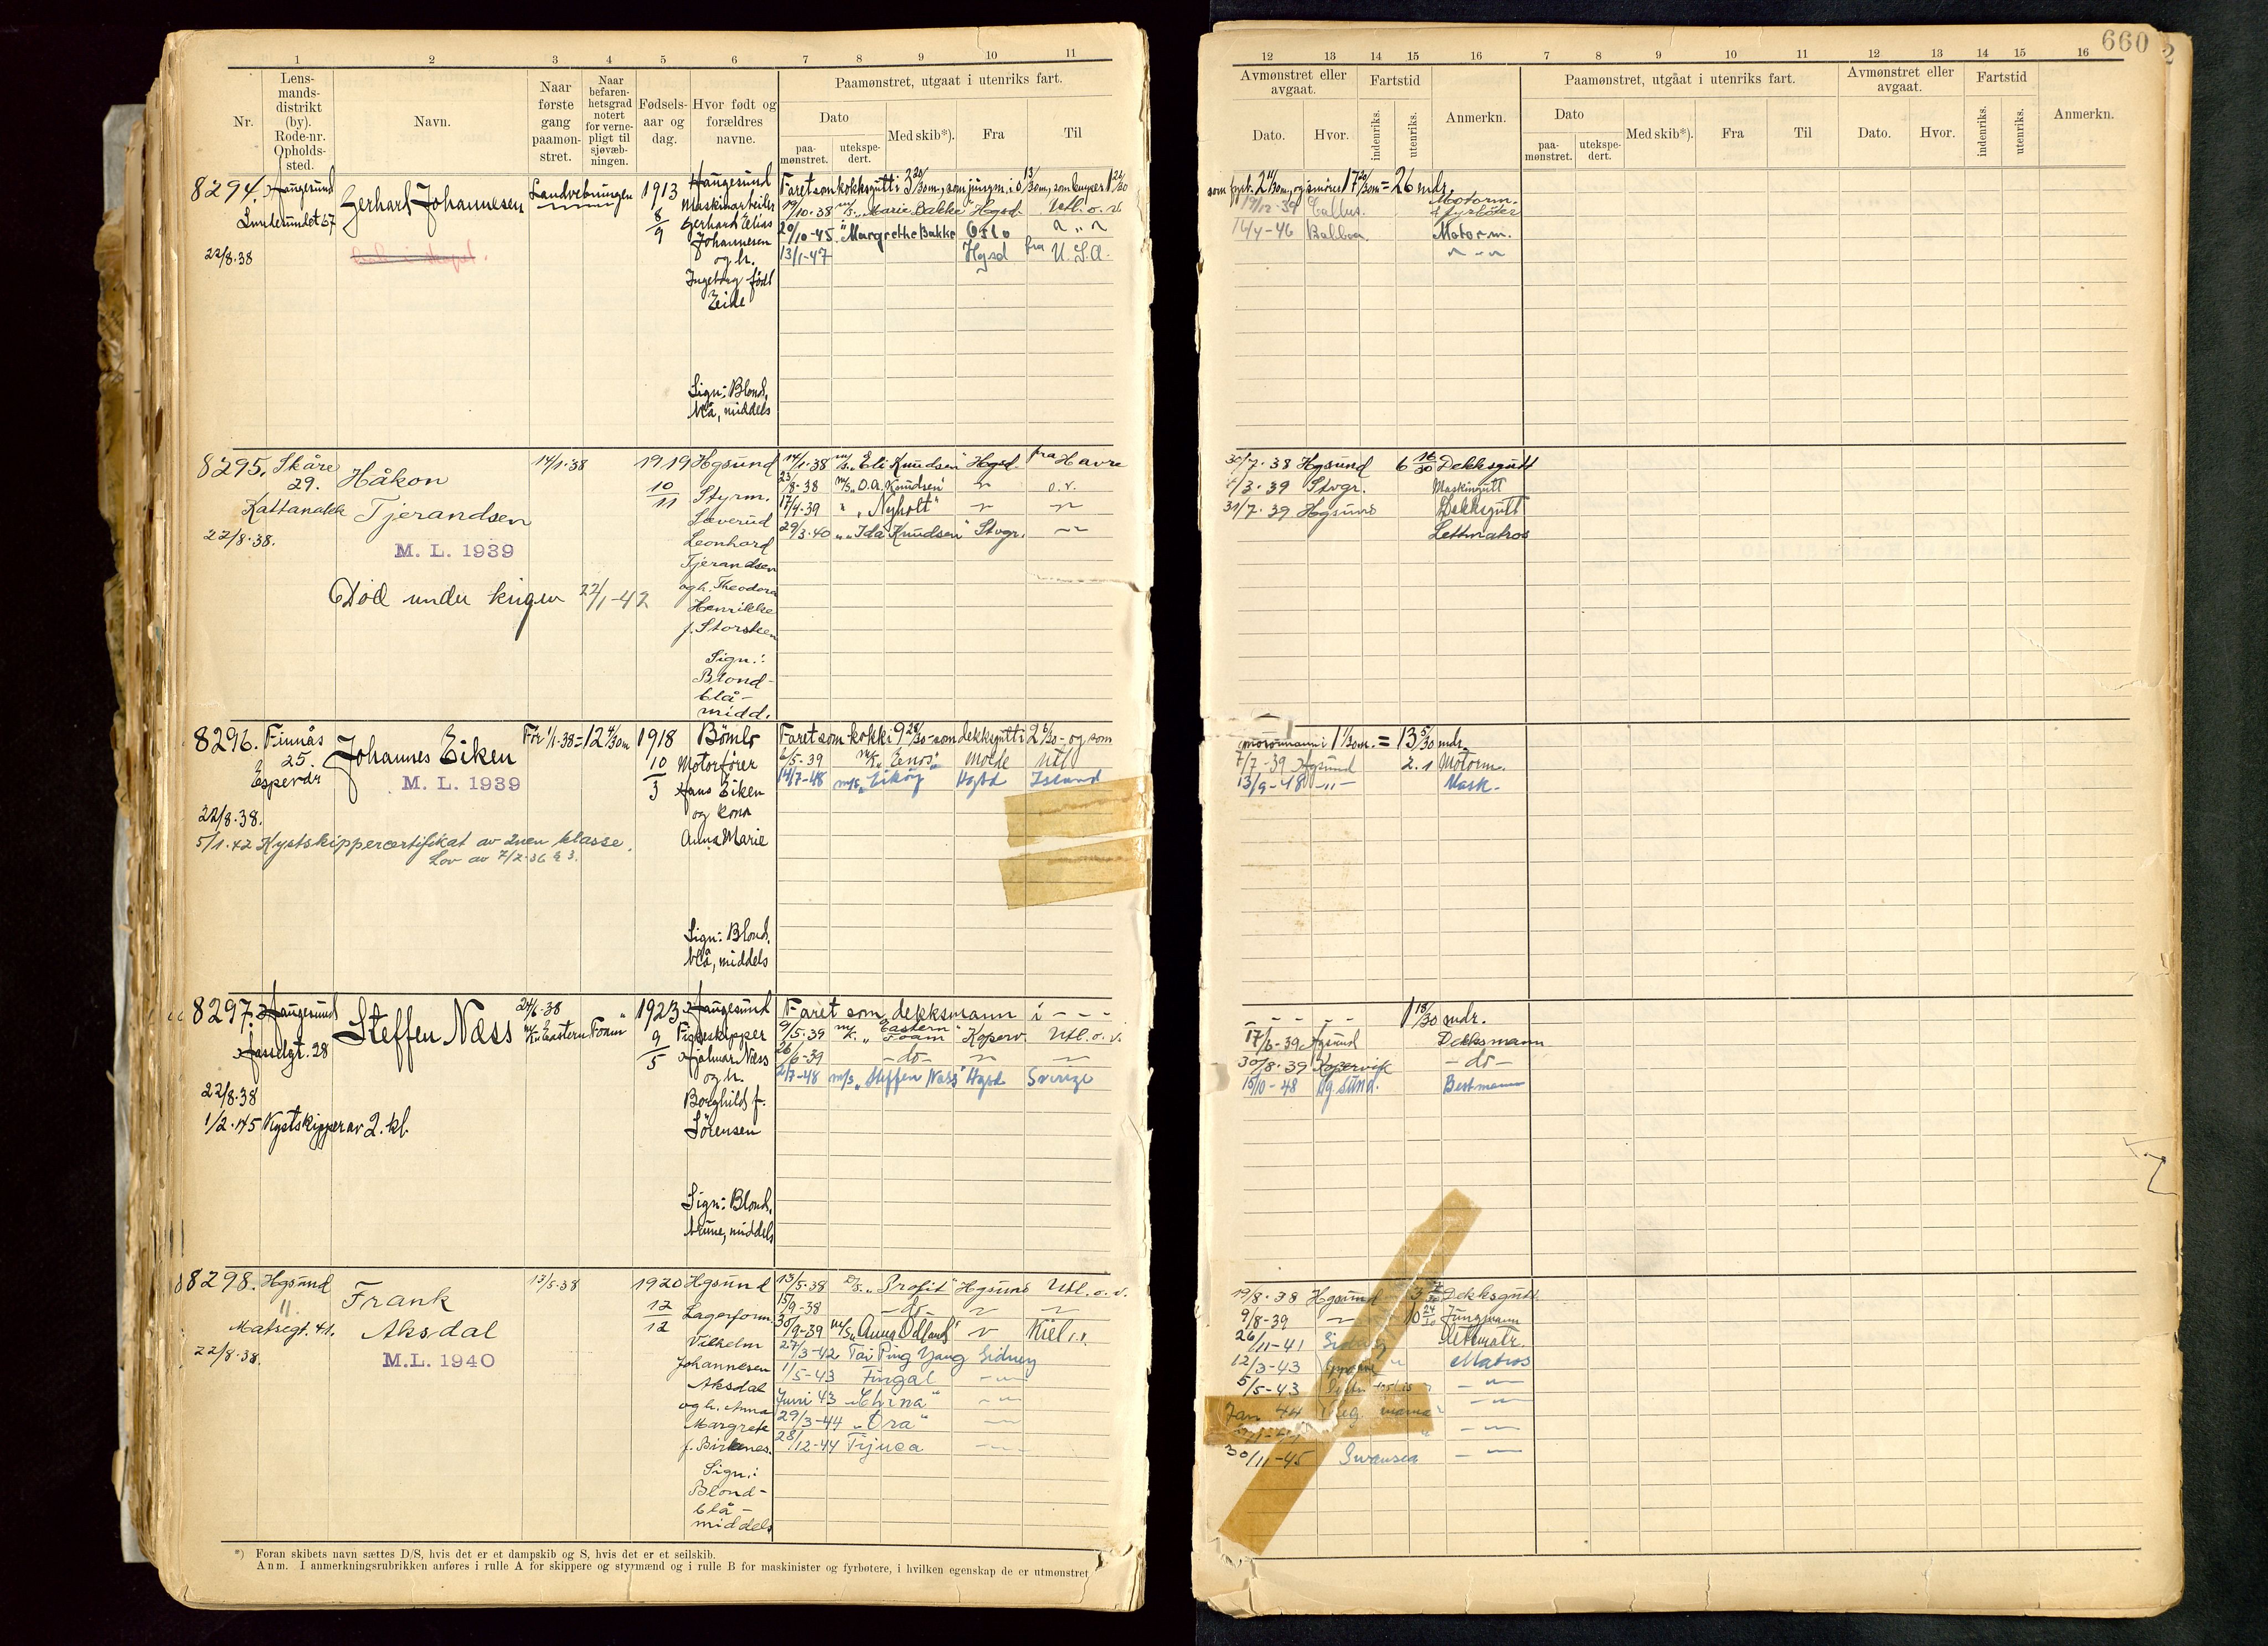 660
1 2 3 4 5 6 7 8 9 10 11
12 13 14 15 16 7 8 9 10 11 12 13 14 15 16
Nr.
Lens-
mands-
distrikt
(by).
Rode-nr.
Opholds-
sted.
Navn.
Naar
første
gang
paamøn-
stret.
Naar
befaren-
hetsgrad
notert
for verne-
pligt til
sjøvæb-
ningen.
Fødsels-
aar og
dag.
Hvor født og
forældres
navne.
Paamønstret, utgaat i utenriks fart.
Dato
paa-
mønstret.
utekspe-
dert.
Med skib*).
Fra
Til
Avmønstret eller
avgaat.
Dato.
Hvor.
Fartstid
indenriks.
utenriks.
Anmerkn.
Paamønstret, utgåat i utenriks fart.
Dato
paa-
mønstret.
utekspe-
dert.
Med skib*).
Fra
Til
Avmønstret eller
avgaat.
Dato.
Hvor.
Fartstid
indenriks.
utenriks.
Anmerkn.
8294. Haugesund
67
22/8.38
Gerhard Johannesen
1913
8/9
Haugesund
Maskinarbeider
Gerhard Elias
Johannesen
og h.
Ingeborg født
Eide
Sign: Blond,
blå, middels
19/10-38 m/s. "Marie Bakke" Hgsd. Utl. o. v.
20/10-45 " "Margrethe Bakke" Oslo
13/1-47 Hgsd fra U.S.A.
= 26 mdr.
19/12-39 Motorm.
14/4-46 Balboa. Motorm.
8295. Skåre
29.
22/8.38.
Håkon
Tjerandsen
M. L. 1939
Død under krigen 22/1-42
14/1.38
1919
10/11
Hgsund
Styrm.
Laverud
Leonhard
Tjerandsen
og h. Theodora
Henrikke
f. Storsteen
Sign.:
Blond-
blå-
midd.
14/1.38 m/s. "Eli Knudsen" Hgsd. fra Havre
23/8.38 m/s. "O.A. Knudsen" o.v.
17/4-39 " "Nyholt"
29/3-40 " "Ida Knudsen" Stvgr.
30/7.38 Hgsund 6 16/30 Dekksgutt
/3.39 Stvgr. Maskingutt
31/7.39 Hgsund Dekksgutt
Lettmatros
8296. Finnås
25.
Espevær
22/8.38.
Johannes Eiken
M. L. 1939
5/1.42 Kystskippercertifikat av 2nen klasse.
Lov av 7/2-36 § 3.
Før 1/1-38 = 12 4/30 m
1918
10/3
Bömlo
Motorfører
Hans Eiken
og kona
Anna Marie
Sign: Blond,
blå, middels
6/5-39 m/k. "Enos" Molde Utl
14/7-48 m/s. "Eikøy" Hgsd Island
motormann i 1 1/30 m. = 13 5/30 mdr.
7/7-39 Hgsund 2.1 Motorm.
13/9-48 -"- Mask.
8297. Haugesund
28
22/8.38
Steffen Næss
1/2.45 Kystskipper av 2. kl.
24/6.38
m/k. "Eastern Foam"
1923
9/5
Haugesund
Fiskeskipper
Hjalmar Næss
og h.
Borghild f.
Sørensen
Sign: Blond,
brune, middels
Faret som dekksmann i - - -
9/5.39 m/k. "Eastern Foam" Koperv. Utl. o. v.
26/6-39 -do-
2/7-48 m/s. "Steffen Næss" Hgsd Sverige
- - - - - 1 18/30 mdr.
17/6-39 Hgsund Dekksmann
30/8.39 Kopervik -do-
15/10-48 Hgsund. Bestmann
8298. Hgsund
11.
Matsegt. 41.
22/8.38.
Frank
Aksdal
M.L. 1940
13/5.38
1920
12/12
Hgsund
Lagerform.
Vilhelm
Johannesen
Aksdal
og h. Anna
Margrete
f. Birkenes.
Sign.:
Blond-
blå-
middels
13/5.38 D/S. "Profit" Hgsund Utl. o. v.
15/9-38 -do-
30/9-39 m/s. "Anna Odland" Kiel
27/3-42 Tai Ping Yang Sidney
11/5-43 Fingal
Juni 43 "China"
29/3-44 "Ora"
28/12-44 Tijuca
19/8.38 Hgsund 3 Dekksgutt
9/8-39 10 24/30 Jungmann
26/11-41 Sidney Lettmatr.
12/3-43 Matros
5/5-43
Jan 44
30/11-45 Swansea
*) Foran skibets navn sættes D/S, hvis det er et dampskib og S, hvis det er et seilskib.
Anm. I anmerkningsrubrikken anføres i rulle A for skippere og styrmænd og i rulle B for maskinister og fyrbøtere, i hvilken egenskap de er utmønstret